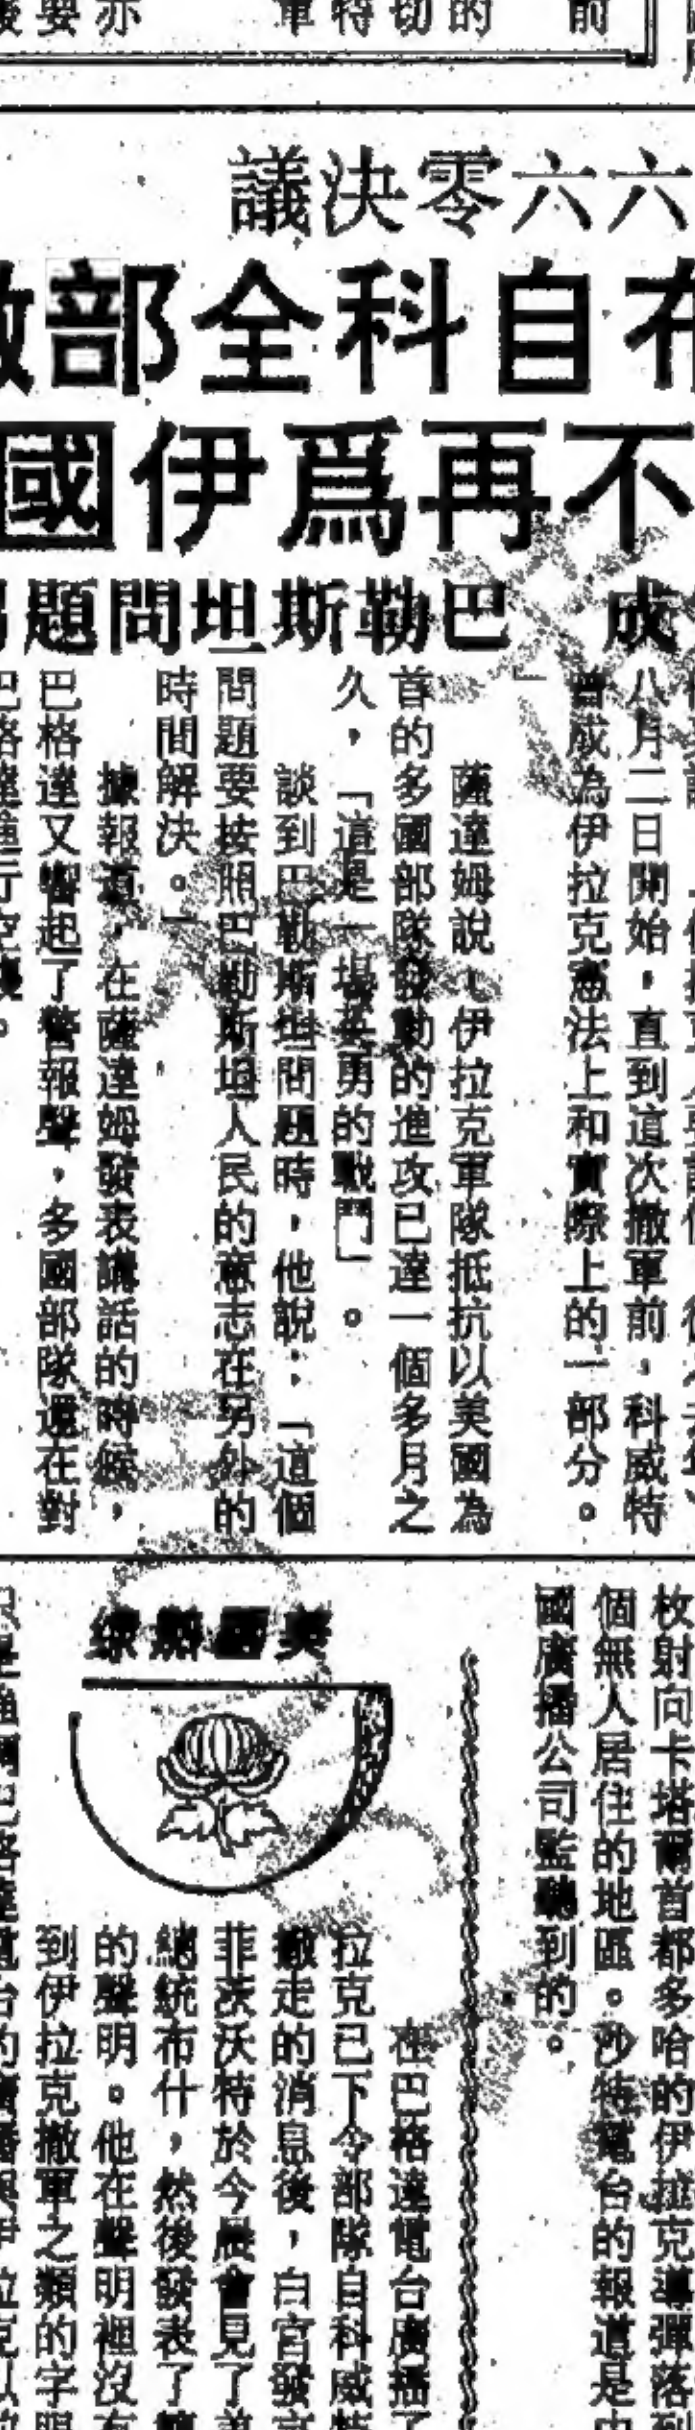 前
的
切
特
軍
亦
要
六六零決議
布自科全部撤
不再爲伊國
成 巴勒斯坦問題
八月二日開始，直到這次撤軍前，科威特
曾成為伊拉克憲法上和實際上的一部分。
」
薩達姆說，伊拉克軍隊抵抗以美國為
首的多國部隊發動的進攻已達一個多月之
久，「這是一場英勇的戰鬥」。
談到巴勒斯坦問題時，他說：「這個
問題要按照巴勒斯坦人民的意志在另外的
時間解決。」
據報道，在薩達姆發表講話的時候，
巴格達又響起了警報聲，多國部隊還在對
巴格達進行空襲。
枚射向卡塔爾首都多哈的伊拉克導彈落到
個無人居住的地區。沙特電台的報道是
國廣播公司監聽到的。
在巴格達電台廣播了
拉克已下令部隊自科威特
撤走的消息後，白宮發言
菲茨沃特於今晨會見了美
總統布什，然後發表了
的聲明。他在聲明裡沒有
到伊拉克撤軍之類的字眼